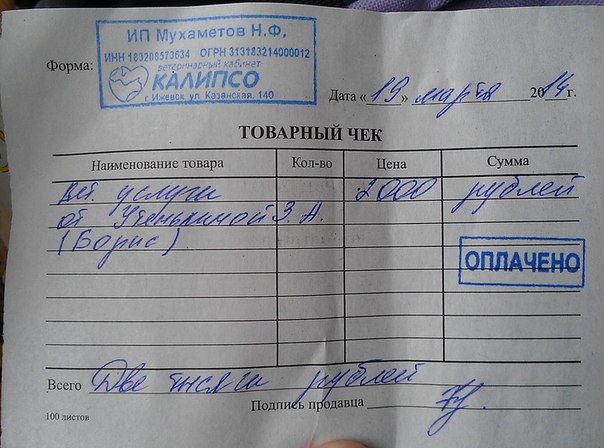 ИП Мухаметов Н.Ф.
ИНН 183208573634 ОГРН 313183214000012
ветеринарный кабинет
КАЛИПСО
г. Ижевск ул. Казанская, 140
Форма:
Дата « 19 » марта 2014 г.
ТОВАРНЫЙ ЧЕК
Наименование товара Кол-во Цена Сумма
Вет. услуги 2000 рублей
от З. А.
(Борис)
ОПЛАЧЕНО
Всего Две тысячи рублей
Подпись продавца
100 листов